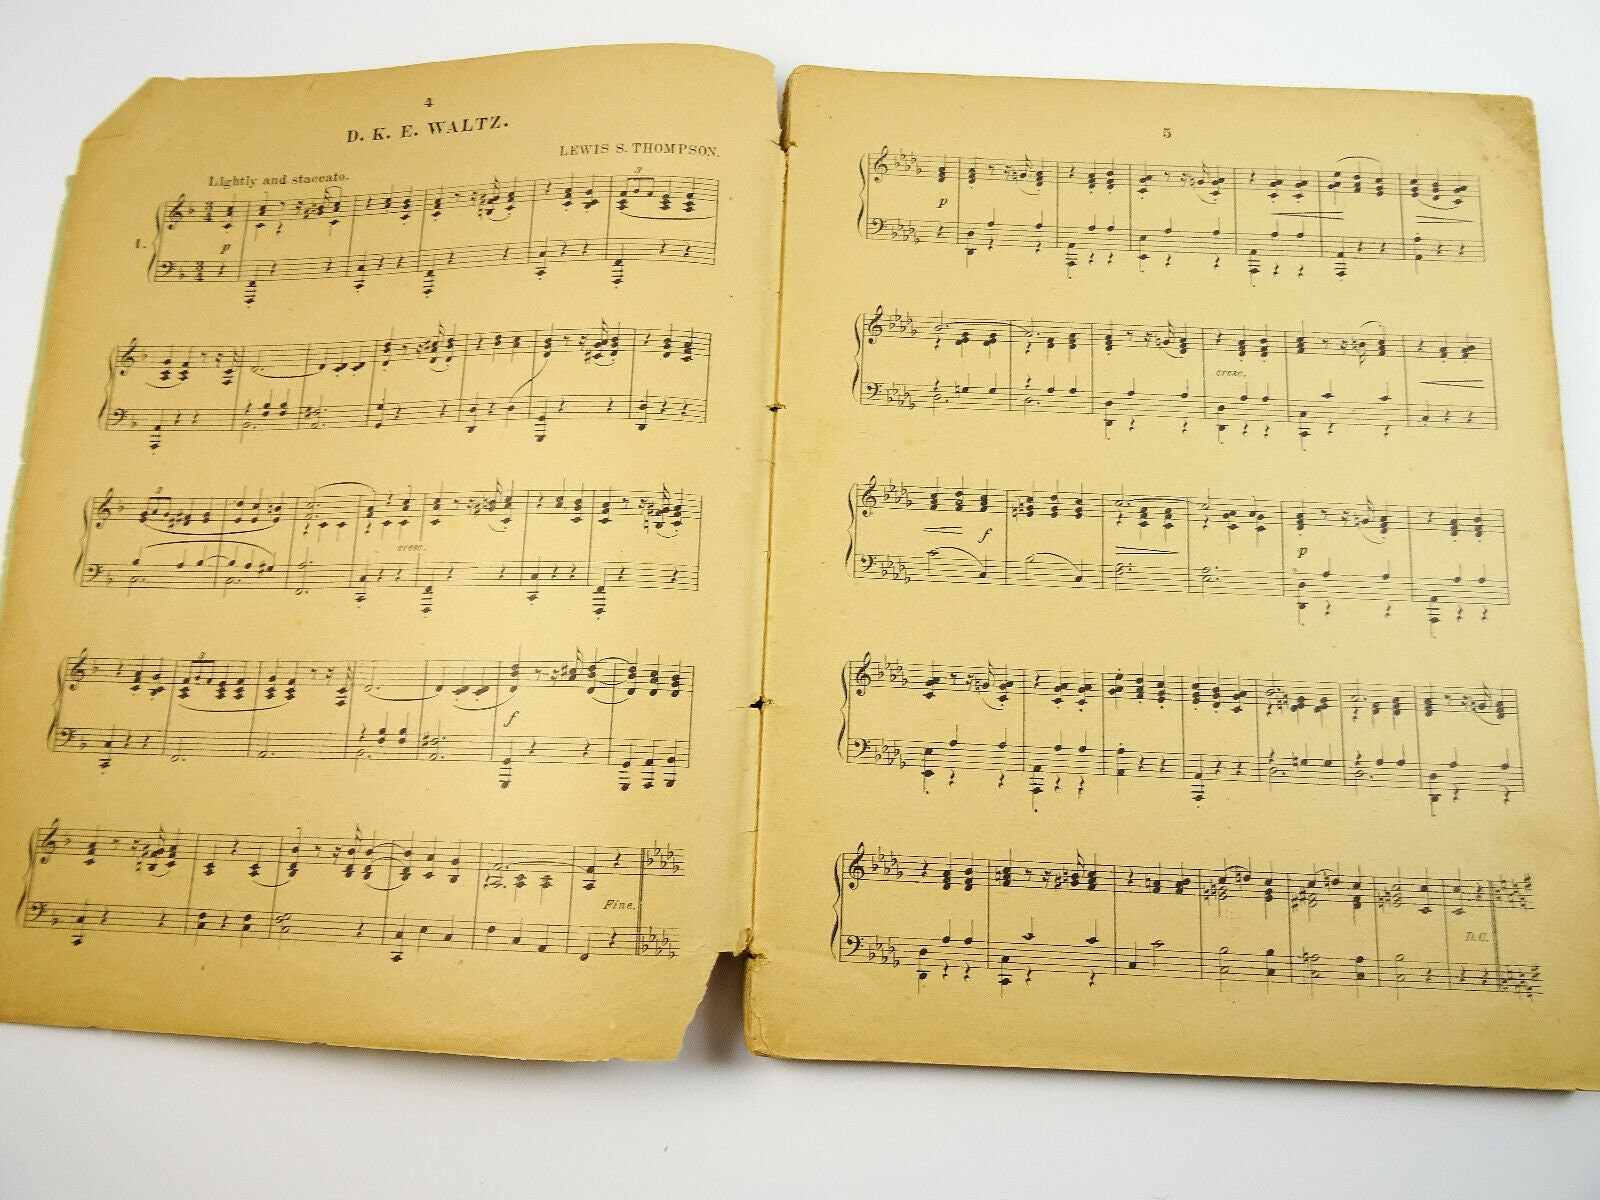 4
D. K. E. WALTZ.
LEWIS S. THOMPSON.
Lightly and staccato.
3
1.
3
4
p
3
4
3
cresc.
3
f
Fine.
5
p
cresc.
f
p
D.C.